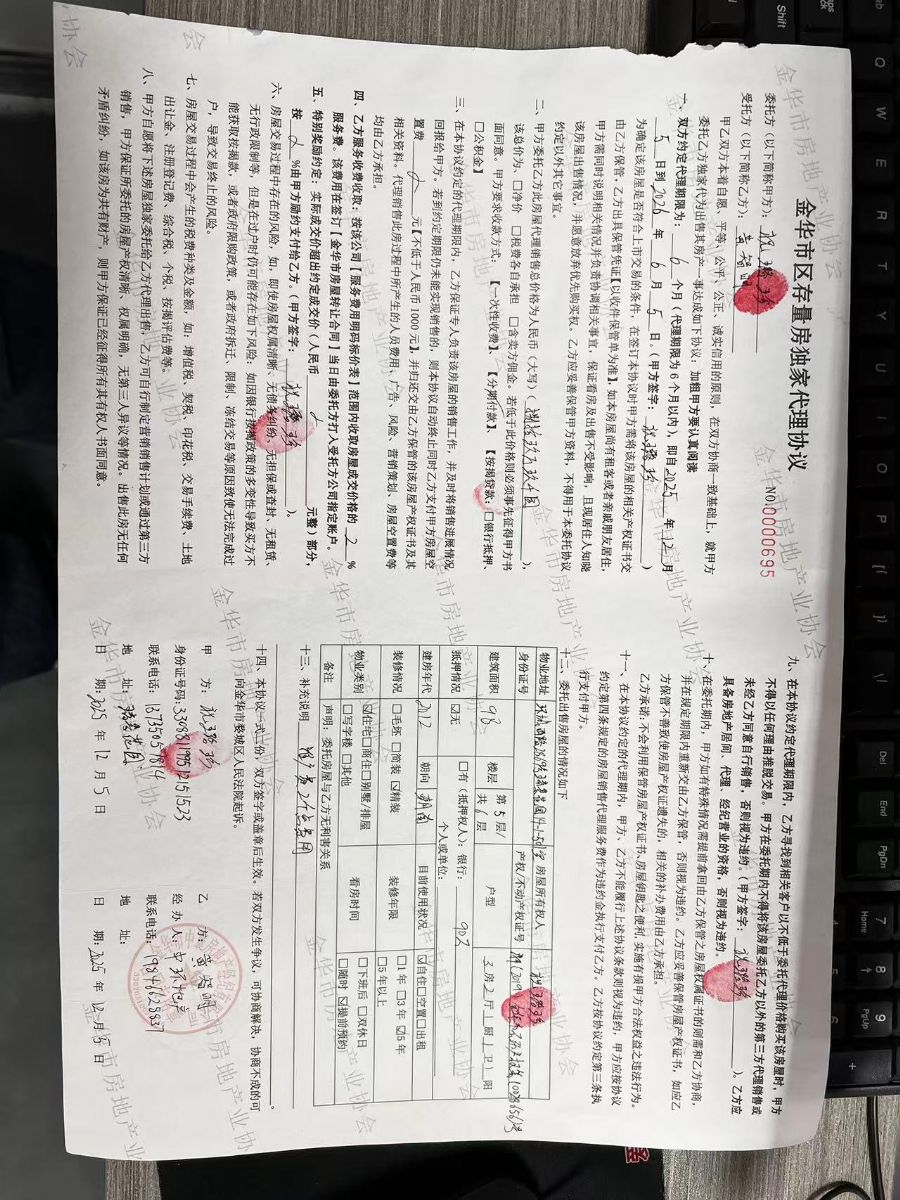 金华市区存量房独家代理协议
NO.0000695
委托方（以下简称甲方）：
受托方（以下简称乙方）：
甲乙双方本着自愿、平等、公平、公正、诚实信用的原则，在双方协商一致基础上，就甲方
委托乙方独家代为出售其房产一事达成如下协议，加粗甲方要认真阅读
一、双方约定代理期限为： 6 个月（代理期限为6个月以内），即自2025 年 12 月
5 日到2026 年 6 月 5 日。（甲方签字： ）
为确定该房屋是否符合上市交易的条件，在签订本协议时甲方需将该房屋的相关产权证书交
由乙方保管，乙方出具保管凭证【以收件保管单为准】。如本房屋尚有租客或者亲戚朋友居住，
甲方需同时说明相关情况并负责协调相关事宜，保证看房及出售不受影响，且现居住人知晓
该房屋出售情况，并愿意放弃优先购买权。乙方应妥善保管甲方资料，不得用于本委托协议
约定以外其它事宜。
二、甲方委托乙方此房屋代理销售总价格为人民币（大写）（ ），
该总价为、□净价 □税费各自承担 □含卖方佣金。若低于此价格则必须事先征得甲方书
面同意。甲方要求收款方式：【一次性收费】、【分期付款】、【按揭贷款：□银行抵押、
□公积金】
三、在本协议约定的代理期限内，乙方保证专人负责该房屋的销售工作，并及时将销售进展情况
回报给甲方。若到约定期限仍未能实现销售的，则本协议自动终止同时乙方支付甲方房屋空
置费 元【不低于人民币1000元】，并归还交由乙方保管的该房屋产权证书及其
相关资料。代理销售此房过程中所产生的人员费用、广告、风险、营销策划、房屋空置费等
均由乙方承担。
四、乙方服务收费收取：按该公司【服务费用明码标价表】范围内收取房屋成交价格的 2 %
服务费。该费用在签订【金华市房屋转让合同】当日由委托方打入受托方公司指定账户。
五、特别奖励约定：实际成交价超出约定成交价（人民币 元整）部分，
按 %由甲方励约支付给乙方。（甲方签字： ）。
六、房屋交易过程中存在的风险，如，即使房屋权属清晰、无债务纠纷、无担保或查封、无租赁、
无行政限制等，但是在过户时仍可能存在如下风险：如因银行按揭政策的多变性导致买方不
能获取按揭款，或者政府限购政策，或者政府拆迁、限制、冻结交易等原因致使无法完成过
户，导致交易终止的风险。
七、房屋交易过程中会产生的税费种类及金额，如：增值税、契税、印花税、交易手续费、土地
出让金、注册登记费、综合税、个税、按揭评估费等。
八、甲方自愿将下述房屋独家委托给乙方代理出售，乙方可自行制定营销销售计划或通过第三方
销售，甲方保证所委托的房屋产权清晰、权属明确，无第三人异议等情况。出售此房无任何
矛盾纠纷，如该房为共有财产，则甲方保证已经征得所有共有权人书面同意。
九、在本协议约定代理期限内，乙方寻找到相关客户以不低于委托代理价格购买该房屋时，甲方
不得以任何理由推脱交易。甲方在委托期内不得将该房屋委托乙方以外的第三方代理销售或
未经乙方同意自行销售，否则视为违约。（甲方签字： ）乙方应
具备房地产居间、代理、经纪营业的资格，否则视为违约。
十、在委托期内，甲方如有特殊情况需提前拿回由乙方保管之房屋权属证书的则需和乙方协商，
并在规定期限内重新交由乙方保管，否则视为违约。乙方应妥善保管房屋产权证书，如应乙
方保管不善致使房屋产权证遗失的，相关的补办费用由乙方承担。
乙方承诺：不会利用保管房屋产权证书、房屋钥匙之便利，实施有损甲方合法权益之违法行为。
十一、在本协议约定的代理期内，甲方、乙方不能履行上述协议条款则视为违约，甲方应按协议
约定第四条规定的房屋销售代理服务费作为违约金执行支付乙方。乙方按协议约定第三条执
行支付甲方。
十二、委托出售房屋的情况如下
物业地址 房屋所有权人
身份证号 产权/不动产权证号
建筑面积 98 楼层 第 5 层/共 6 层 户型 3 房 2 厅 1 厨 1 卫 1 阳
抵押情况 ☑无 □有（抵押权人）：银行： 个人或单位：
建房年代 2012 朝向 朝南 目前使用状况 ☑自住□空置□出租
装修情况 □毛坯 □简装 ☑精装 装修年限 □1年□3年☑5年□5年以上
物业类别 ☑住宅□商住□别墅/排屋□写字楼 □其他 看房时间 □下班后 □双休日□随时 ☑提前预约
备注 声明：委托房屋与乙方无利害关系
十三、补充说明
十四、本协议一式二份，双方签字或盖章后生效，若双方发生争议，可协商解决，协商不成的可
向金华市婺城区人民法院起诉。
甲 方：
身份证号码：
联系电话：
地 址：
日 期：2025 年 12 月 5 日
乙 方：
经 办 人：
联系电话：
地 址：
日 期：2025 年 12 月 5 日
金华市房地产业协会